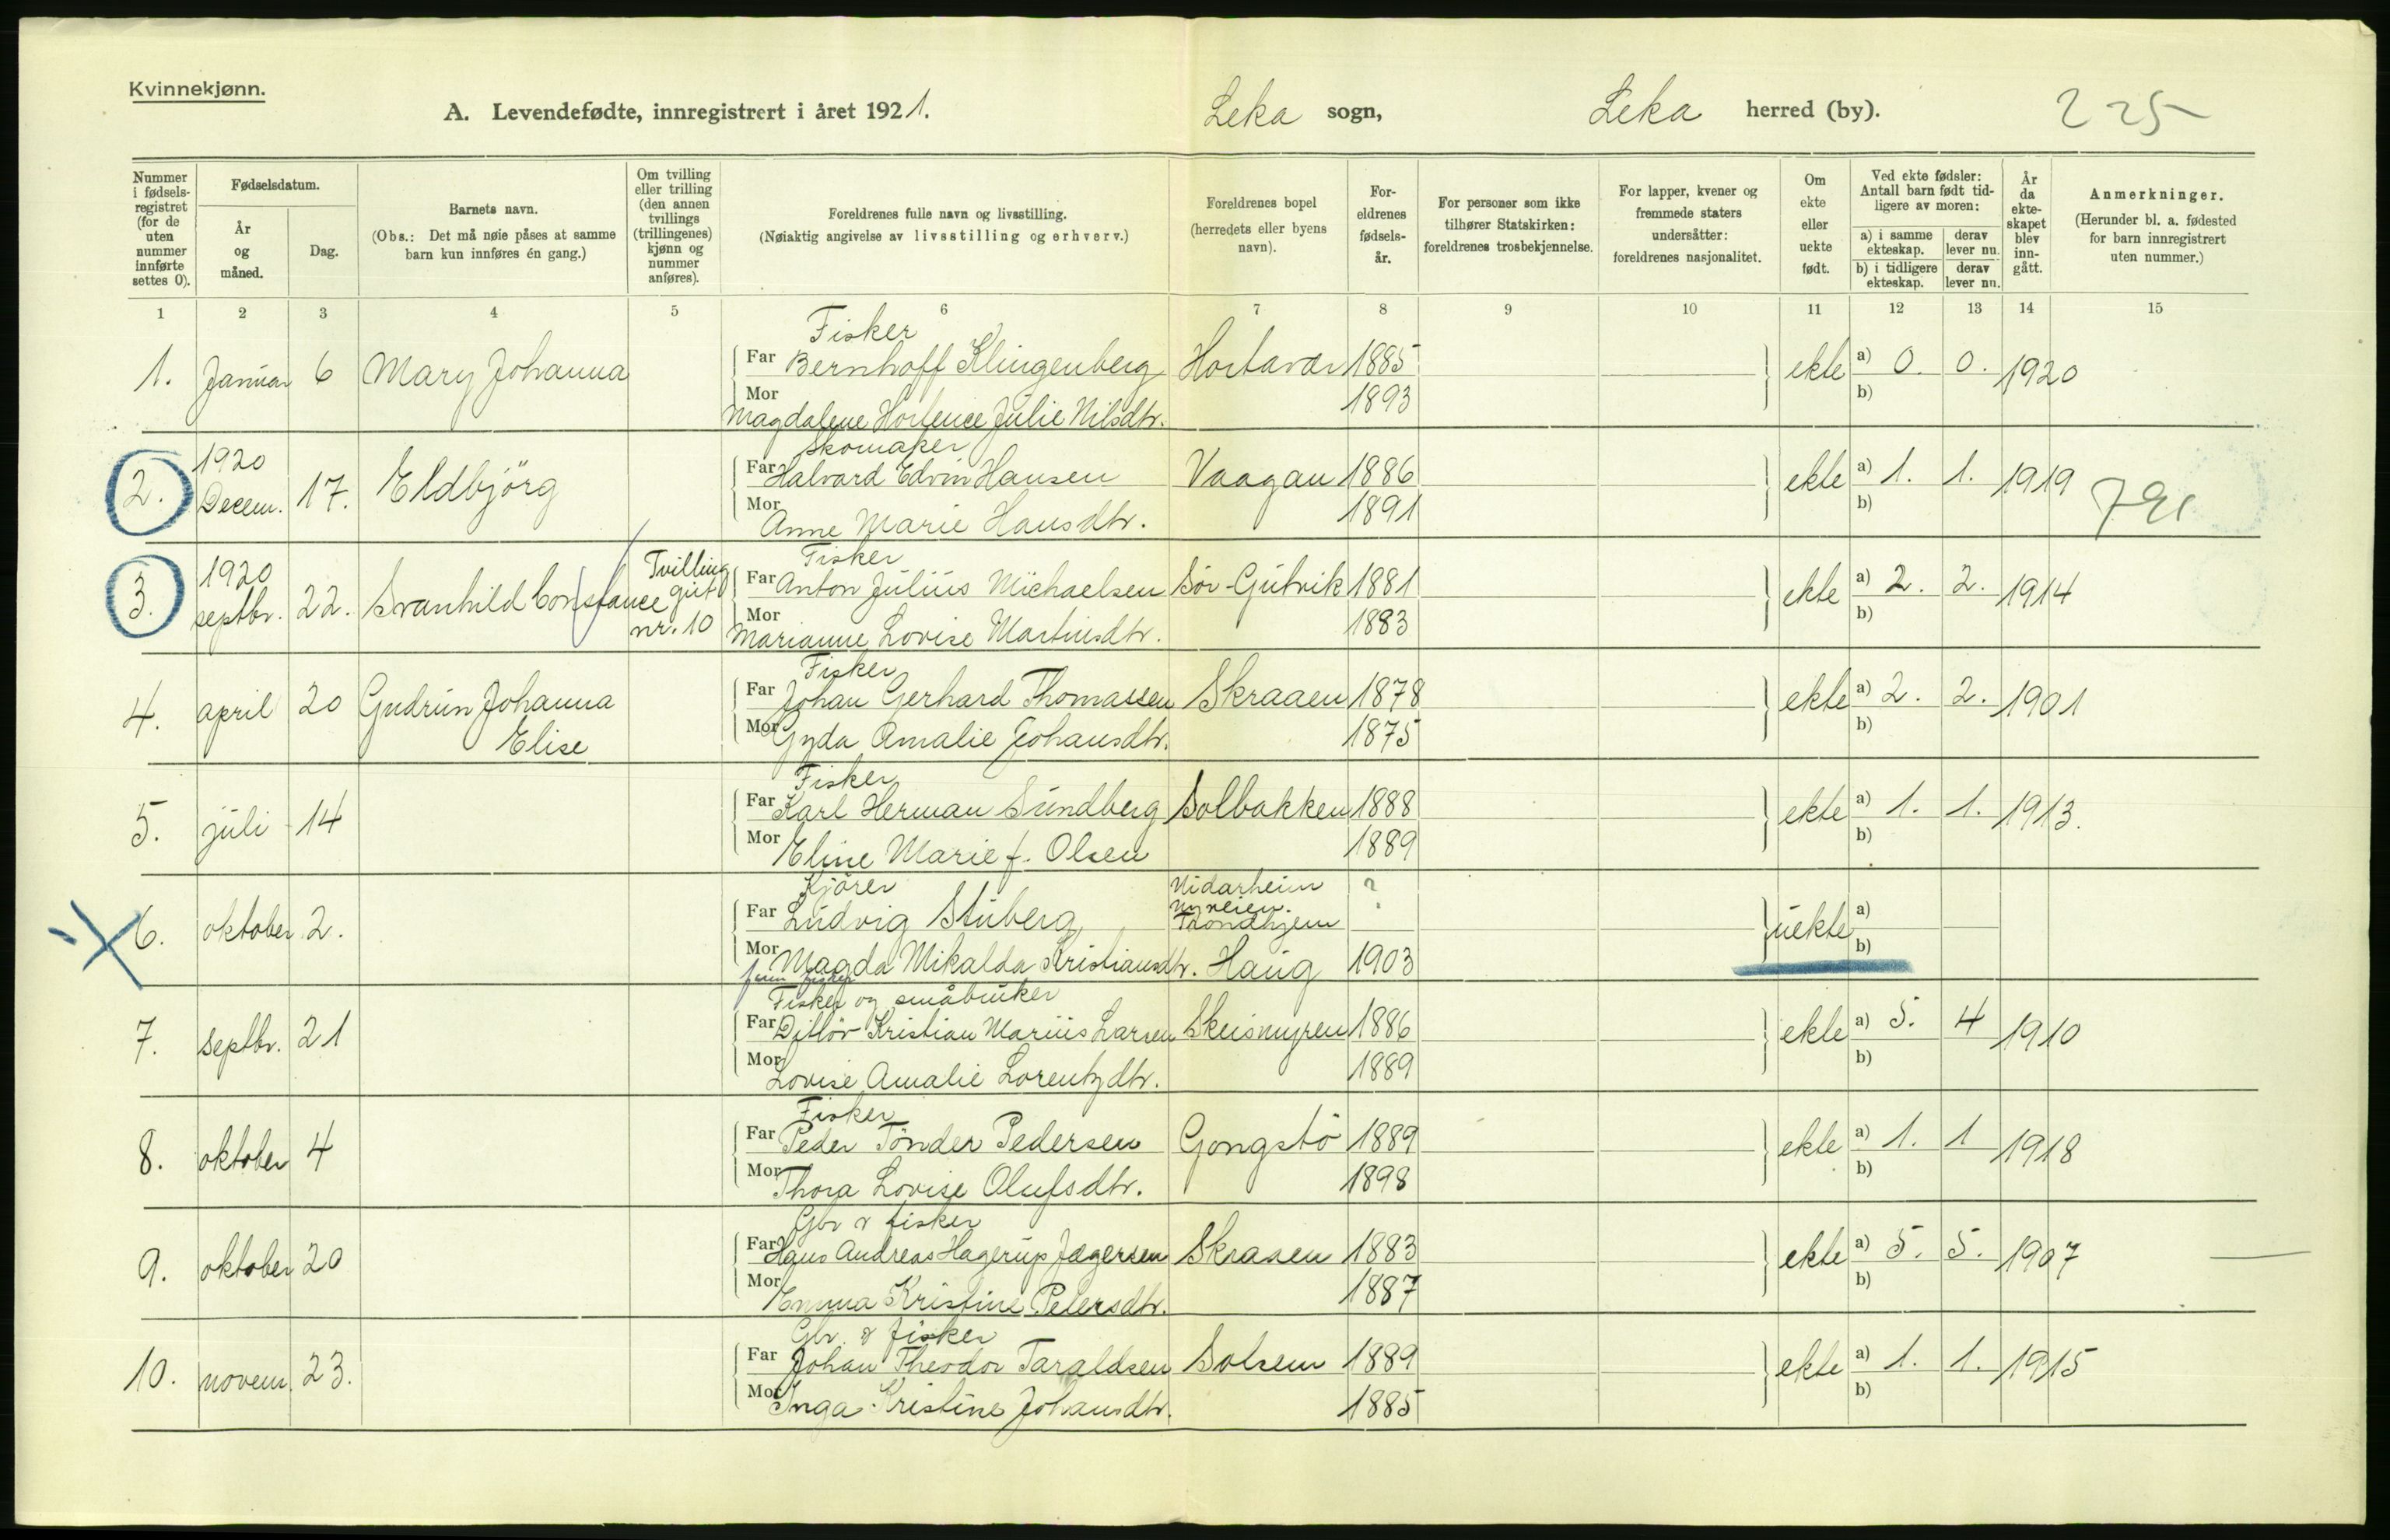 Kvinnekjønn.
A. Levendefødte, innregistrert i året 1921.
Leka sogn, Leka herred (by).
225
Nummer i fødsels- registret (for de uten nummer innførte settes 0).
Fødselsdatum.
År og måned.
Dag.
Barnets navn.
(Obs.: Det må nøie påses at samme barn kun innføres én gang.)
Om tvilling eller trilling (den annen tvillings (trillingenes) kjønn og nummer anføres).
Foreldrenes fulle navn og livsstilling.
(Nøiaktig angivelse av livsstilling og erhverv.)
Foreldrenes bopel (herredets eller byens navn).
For- eldrenes fødsels- år.
For personer som ikke tilhører Statskirken: foreldrenes trosbekjennelse.
For lapper, kvener og fremmede staters undersåtter: foreldrenes nasjonalitet.
Om ekte eller uekte født.
Ved ekte fødsler: Antall barn født tid- ligere av moren:
a) i samme ekteskap. derav lever nu.
b) i tidligere ekteskap. derav lever nu.
År da ekte- skapet blev inn- gått.
Anmerkninger.
(Herunder bl. a. fødested for barn innregistrert uten nummer.)
1 2 3 4 5 6 7 8 9 10 11 12 13 14 15
Fisker
1. Januar 6 Mary Johanna Far Bernhoff Klingenberg Hortavær 1885 ekte a) 0. 0. 1920
Mor Magdalene Hortence Julie Nilsdtr. 1893 b)
Skomaker
2. 1920 Decem. 17. Eldbjörg Far Halvard Edvin Hansen Vaagan 1886 ekte a) 1. 1. 1919
Mor Anne Marie Hansdtr. 1891 b)
Fisker
3. 1920 septbr. 22. Svanhild Constance Tvilling gut nr. 10 Far Anton Julius Michaelsen Sör-Gutvik 1881 ekte a) 2. 2. 1914
Mor Marianne Lovise Martinsdtr. 1883 b)
Fisker
4. april 20 Gudrun Johanna Elise Far Johan Gerhard Thomassen Skraaen 1878 ekte a) 2. 2. 1901
Mor Gyda Amalie Johansdtr. 1875 b)
Fisker
5. juli 14 Far Karl Herman Sundberg Solbakken 1888 ekte a) 1. 1. 1913.
Mor Eline Marie f. Olsen 1889 b)
Kjörer
6. oktober 2. Far Ludvig Stuberg Nidarheim Nyveien. Trondhjem ? uekte a)
Mor Magda Mikalda Kristiansdtr. Haug 1903 b)
Fisker og småbruker
7. septbr. 21 Far Ditlöv Kristian Marius Larsen Skeismyren 1886 ekte a) 5. 4 1910
Mor Lovise Amalie Lorentzdtr. 1889 b)
Fisker
8. oktober 4 Far Peder Tönder Pedersen Gongstö 1889 ekte a) 1. 1 1918
Mor Thora Lovise Olufsdtr. 1898 b)
Gbr & fisker
9. oktober 20 Far Hans Andreas Hagerup Jægersen Skraaen 1883 ekte a) 5. 5. 1907
Mor Emma Kristine Petersdtr. 1887 b)
Gbr. & fisker
10. novem. 23. Far Johan Theodor Taraldsen Solsem 1889 ekte a) 1. 1. 1915
Mor Inga Kristine Johansdtr. 1885 b)